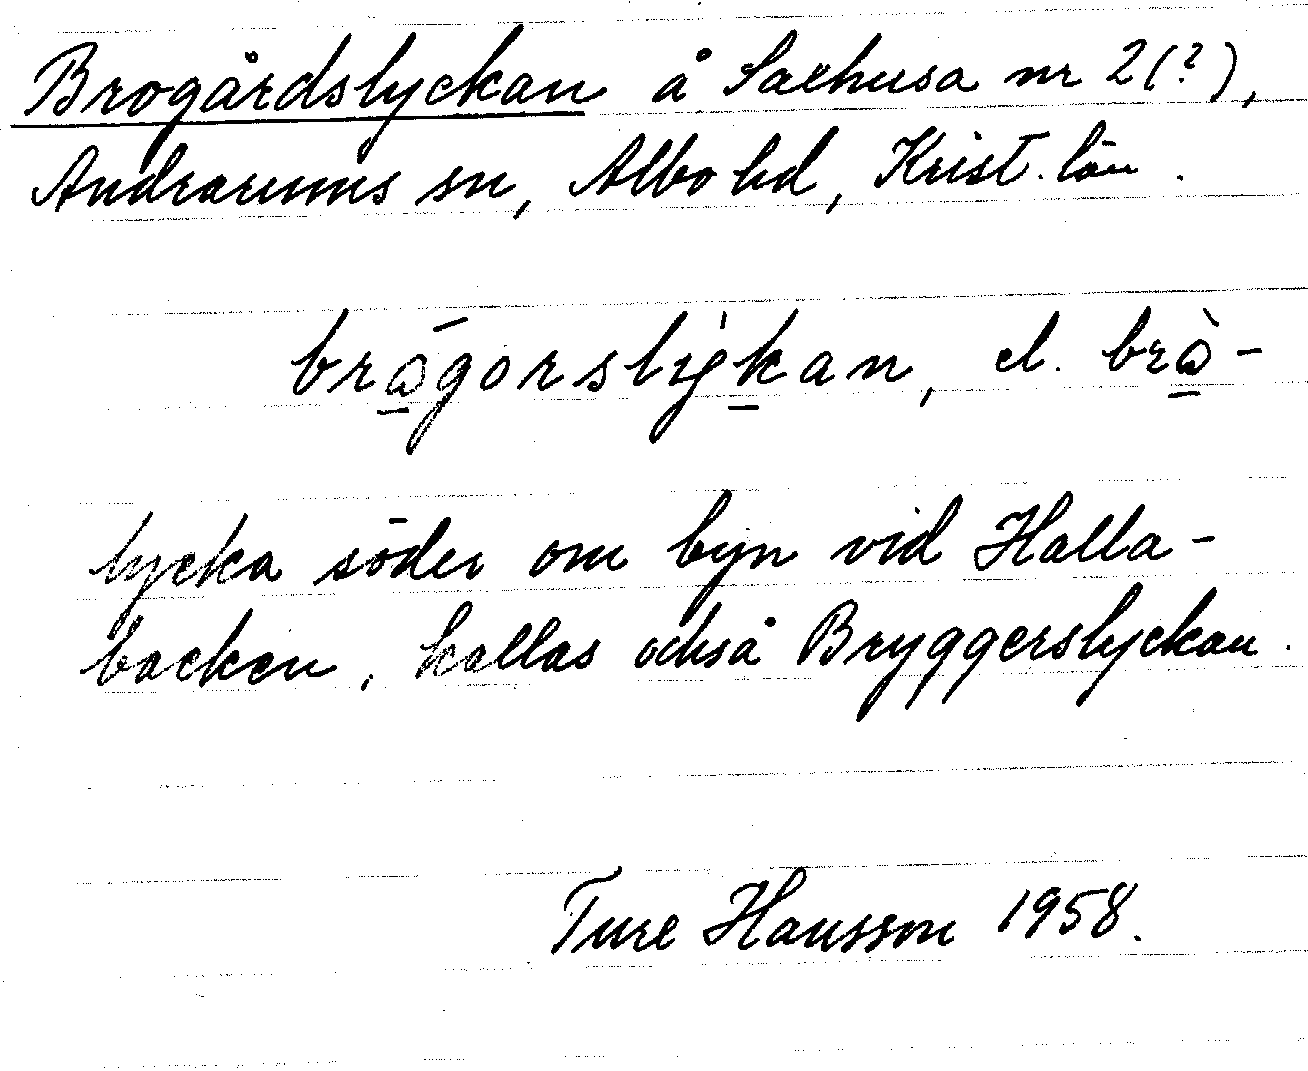 Brogårdslyckan å Sälhusa nr 2(?),
Andrarums sn, Albo hd, Krist. län.
brågorslykan, el. brå-
lycka söder om byn vid Halla-
backen, kallas också Bryggerslyckan.
Ture Hansson 1958.